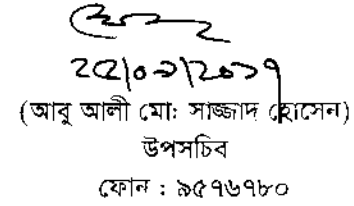 ২৫/০৩/২০১৭
(আবু আলী মোঃ সাজ্জাদ হোসেন)
উপসচিব
ফোন : ৯৫৭৬৭৮০